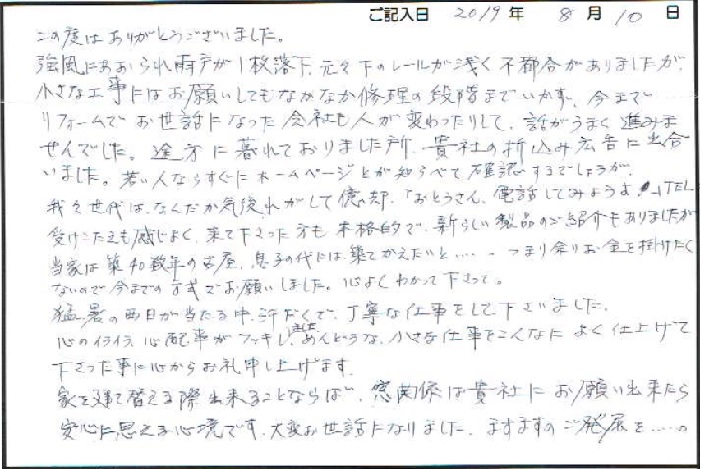 ご記入日 2019年 8月 10日
この度はありがとうございました。
強風にあおられ雨戸が1枚落下、元々下のレールが浅く不都合がありましたが、
小さな工事にはお願いしてもなかなか修理の段階までいかず、今まで
リフォームでお世話になった会社も人が変わったりして、話がうまく進みま
せんでした。途方に暮れておりました所、貴社の折込み広告に出合
いました。若い人ならすぐにホームページとか知らべて確認するでしょうが、
我々世代は、なんだか気後れがして億却、「おとうさん、電話してみようよ!」TEL
受けこたえも感じよく、来て下さった方も本格的で、新らしい製品のご紹介もありましたが
当家は築40数年の古屋、息子の代には築てかえたいと……つまり余りお金を掛けたく
ないので今までの方式でお願いしました。心よくわかって下さって。
猛暑の西日が当たる中、汗だくで、丁寧な仕事をして下さいました。
心のイライラ、心配事がスッキしました。めんどうな、小さな仕事をこんなによく仕上げて
下さった事に心からお礼申し上げます。
家を建て替える際出来ることならば、窓関係は貴社にお願い出来たら
安心に思える心境です。大変お世話になりました。ますますのご発展を……の